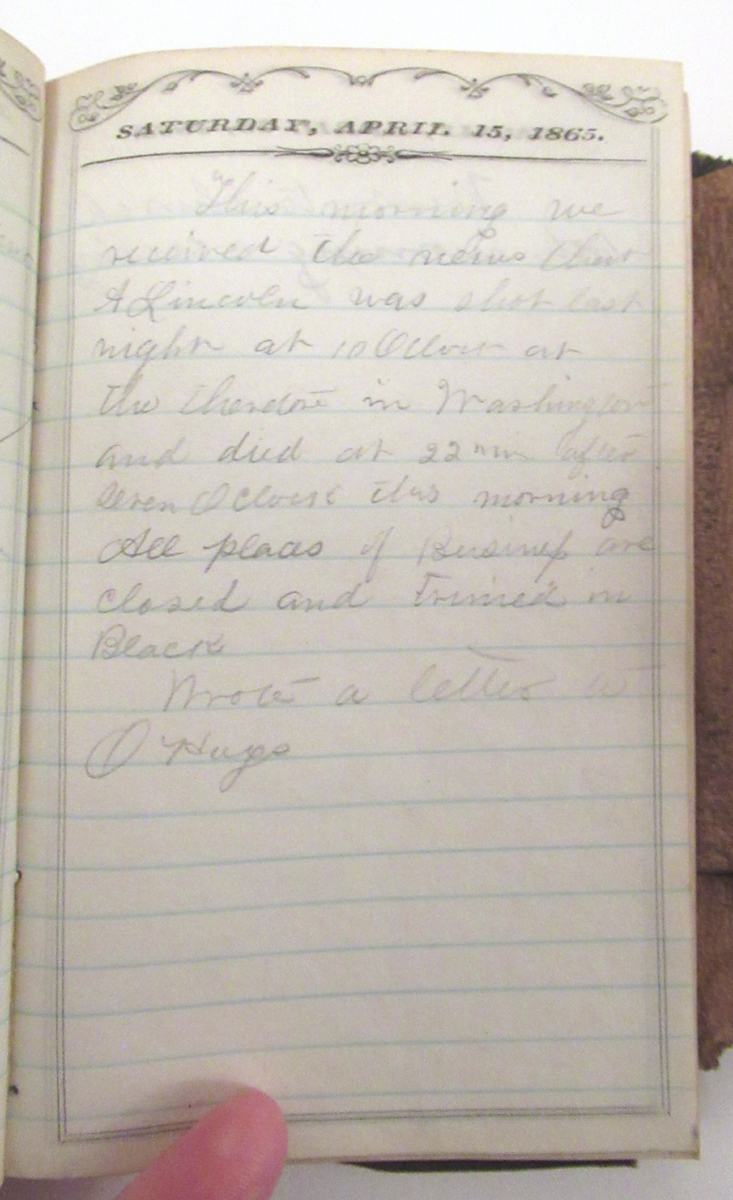 SATURDAY, APRIL 15, 1865.
This morning we
received the news that
A Lincoln was shot last
night at 10 OClock at
the in Washington
and died at 22 min after
OClock this morning
All places of Business are
closed and trimed in
Black
Wrote a letter to
O